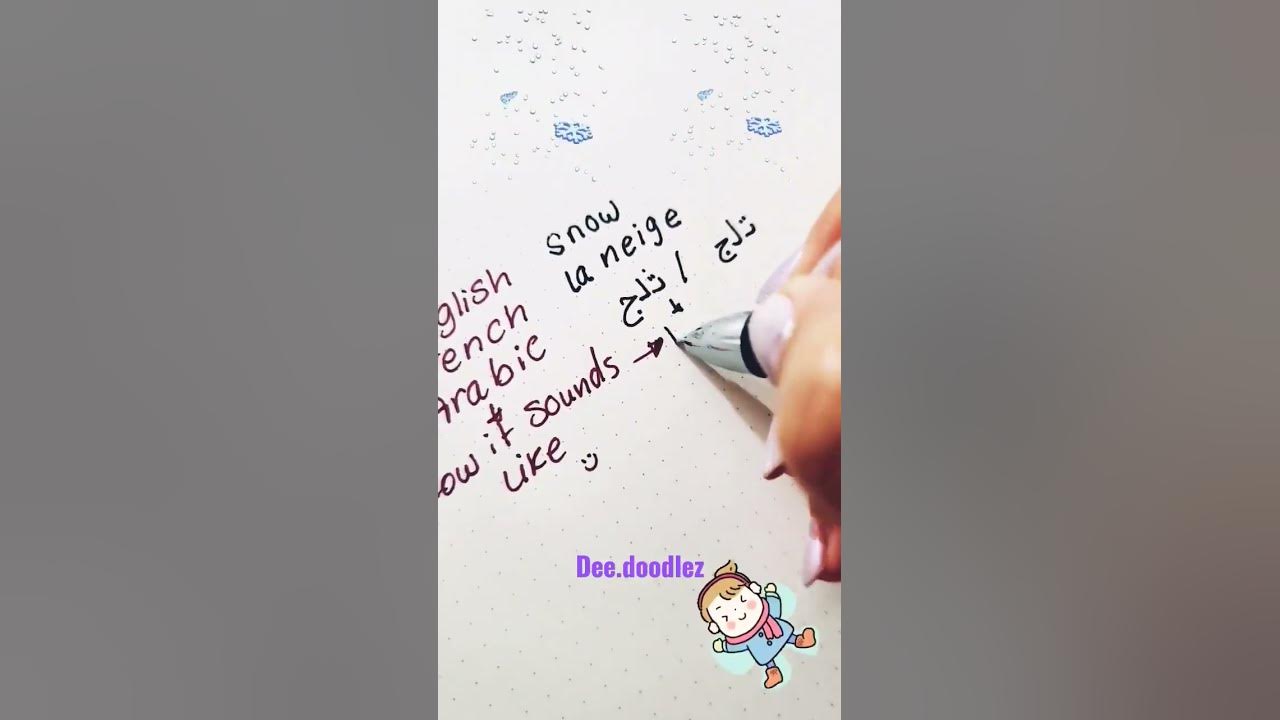 glish snow
ench la neige
Arabic ثلج / تلج
+ +
ow it sounds →
like
Dee.doodlez